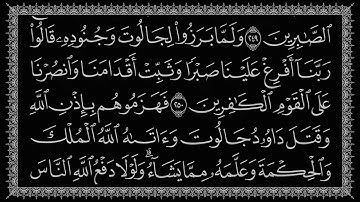 ٱلصَّٰبِرِينَ ٢٤٩ وَلَمَّا بَرَزُوا۟ لِجَالُوتَ وَجُنُودِهِۦ قَالُوا۟
رَبَّنَآ أَفْرِغْ عَلَيْنَا صَبْرًا وَثَبِّتْ أَقْدَامَنَا وَٱنصُرْنَا
عَلَى ٱلْقَوْمِ ٱلْكَٰفِرِينَ ٢٥٠ فَهَزَمُوهُم بِإِذْنِ ٱللَّهِ
وَقَتَلَ دَاوُۥدُ جَالُوتَ وَءَاتَىٰهُ ٱللَّهُ ٱلْمُلْكَ
وَٱلْحِكْمَةَ وَعَلَّمَهُۥ مِمَّا يَشَآءُ ۗ وَلَوْلَا دَفْعُ ٱللَّهِ ٱلنَّاسَ